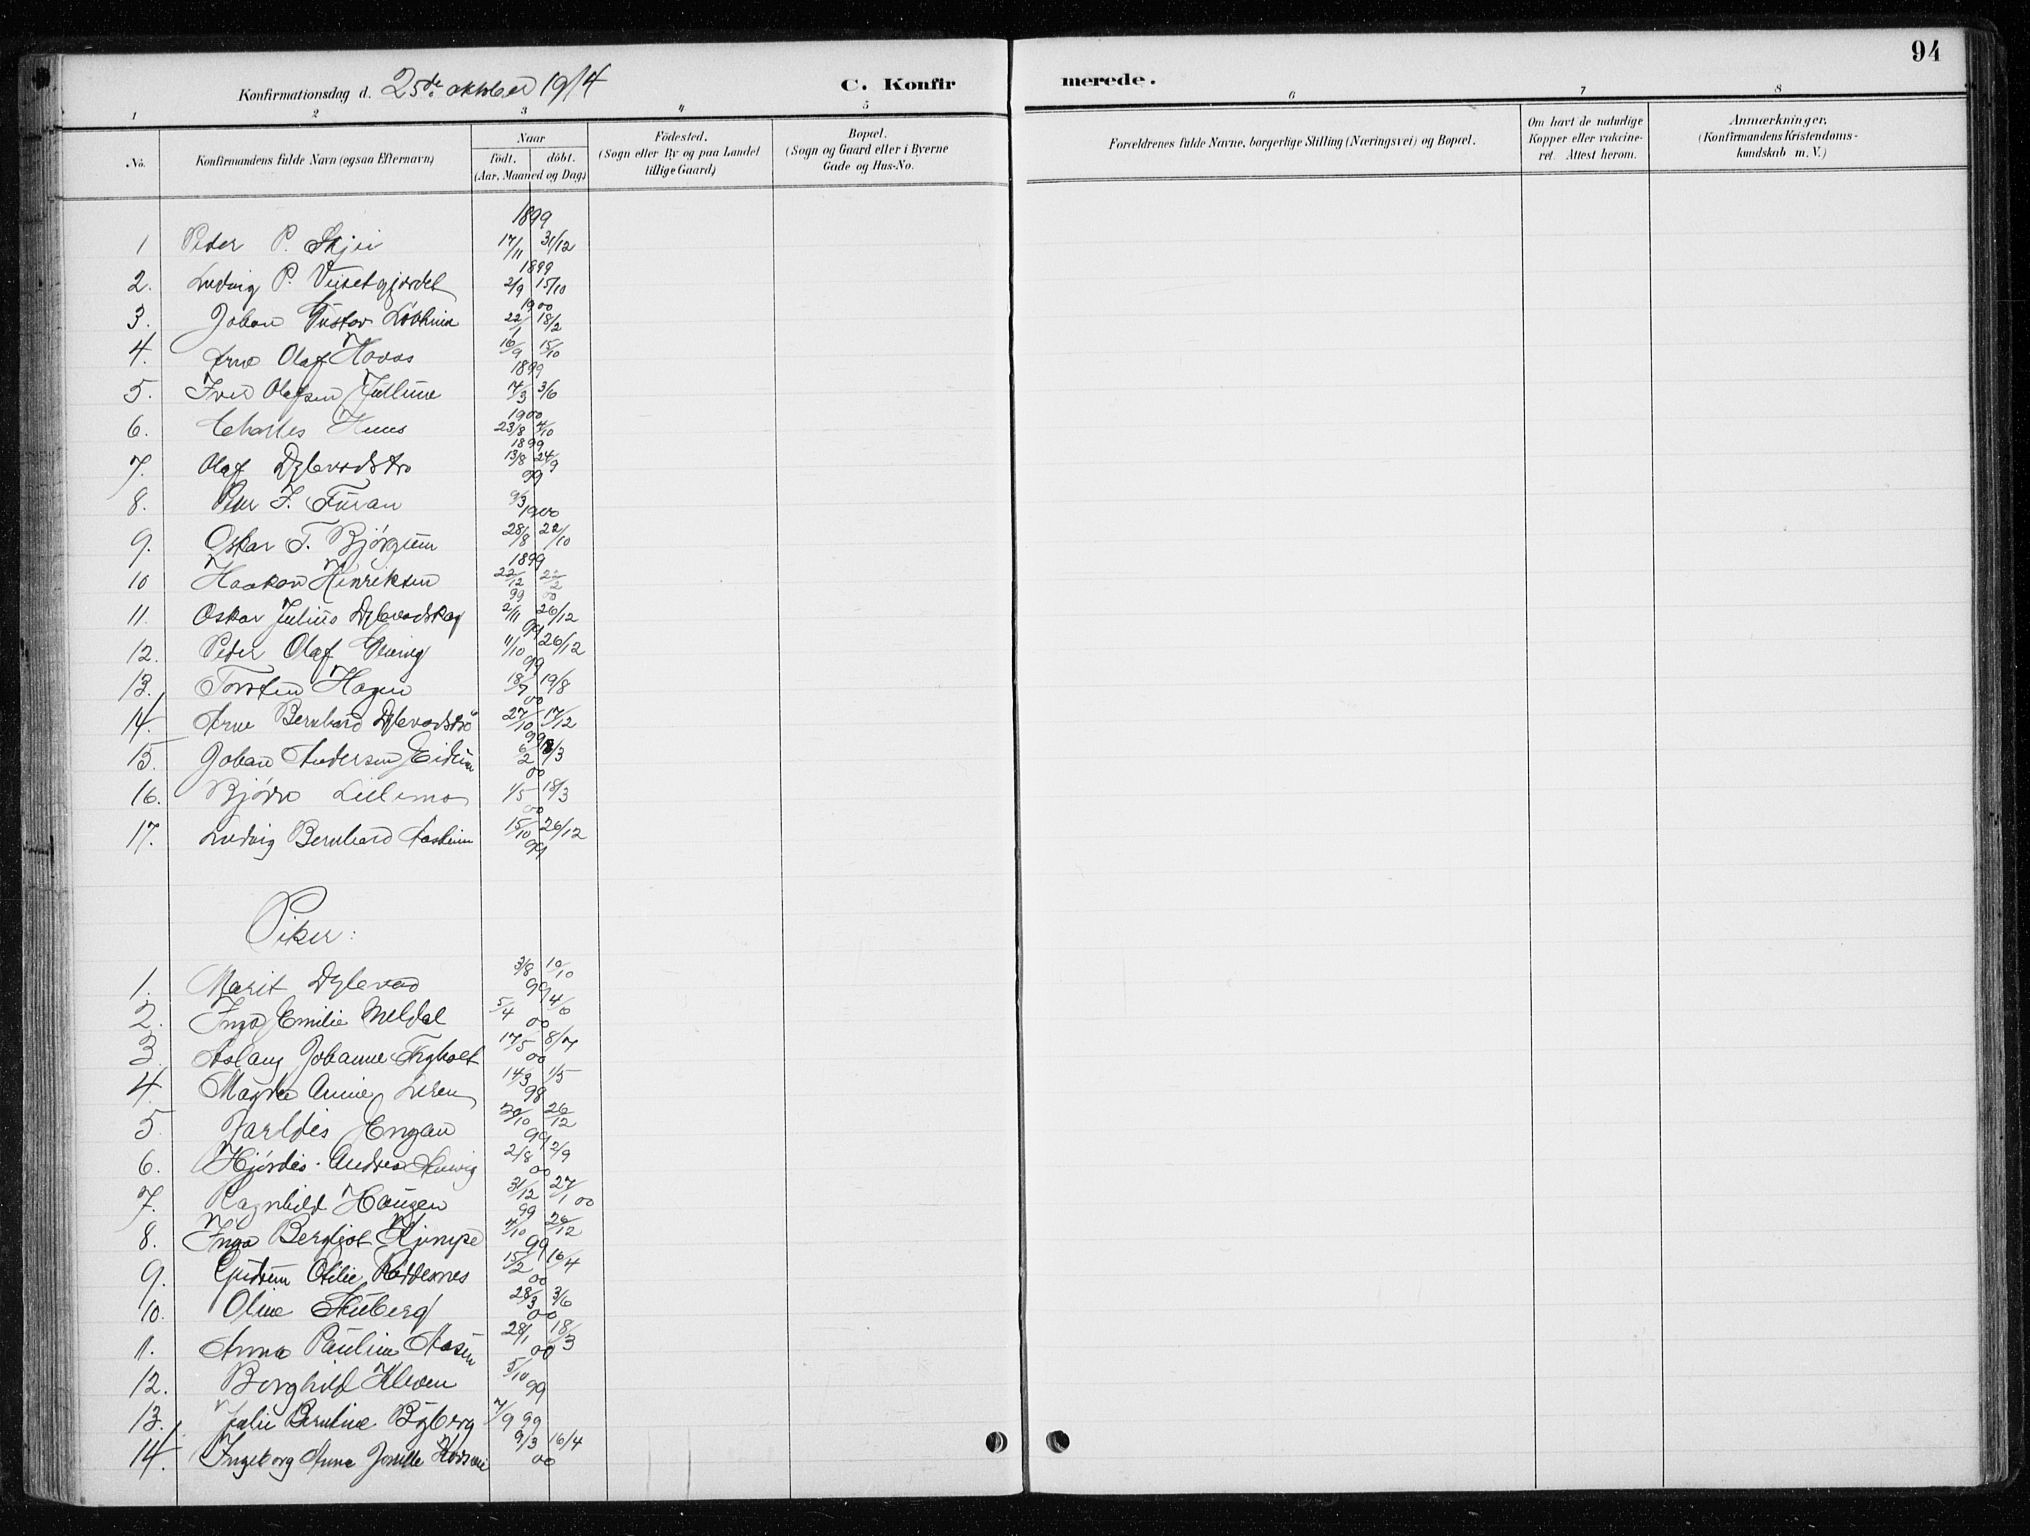 94
Konfirmationsdag d. 25de oktober 1914
C. Konfirmerede.
1 2 3 4 5 6 7 8
No.
Konfirmandens fulde Navn (ogsaa Efternavn)
Naar
født. døbt.
(Aar, Maaned og Dag)
Fødested.
(Sogn eller By og paa Landet
tillige Gaard)
Bopæl.
(Sogn og Gaard eller i Byerne
Gade og Hus-No.
Forældrenes fulde Navne, borgerlige Stilling (Næringsvei) og Bopæl.
Om havt de naturlige
Kopper eller vakcine-
ret. Attest herom.
Anmærkninger.
(Konfirmandens Kristendoms-
kundskab m. V.)
1899
1 Peder P. Skjei 17/11 31/12
1899
2. Ludvig P. 2/9 15/10
1900
3. Johan Gustav Løkkum 22/1 18/2
4. Arne Olaf Hovas 16/9 15/10
1899
5. Iver Olafsen 7/3 3/6
1900
6. Charles 23/8 7/10
1899
7. Olaf Dylevodstrø 13/8 24/9
99
8. Peter J. Furan 9/3
1900
9. Oskar T. Bjørgum 28/8 22/10
1899
10 Haakon Henriksen 22/12 22/2
99 00
11. Oskar Julius Dylevodskag 2/11 26/12
99
12. Peder Olaf 11/10 26/12
99
13. Torsten Hagen 18/7 19/8
00
14. Arne Bernhard Dylevodstrø 27/10 17/12
99
15. Johan Andersen Eidum 6/2 18/3
00
16. Bjørn Lillemo 1/5 18/3
00
17. Ludvig Bernhard Aasheim 15/10 26/12
99
Piker:
1. Marit Dylevod 3/8 10/10
99
2. Inga Emilie Meldal 5/4 4/6
00
3. Aslaug Johanne Fryholt 17/5 8/7
00
4. Magda Annie Leren 14/3 1/5
98
5 Jarldis Engan 20/10 26/12
99
6. Hjørdis Andrea 2/8 2/9
00
7. Ragnhild Haugen 31/12 27/1 00
99
8. Inga Bergljot Kjempe 7/10 26/12
99
9. Gudrun Otilie Røddesnes 15/2 16/4
00
10. Oline Stuberg 28/3 3/6
00
11. Anna Pauline Aasen 28/1 18/3
00
12. Borghild Kleven 5/10
99
13. Julie Berntine Byberg 7/9 99
14. Ingeborg Anna Jonette 9/3 16/4
00